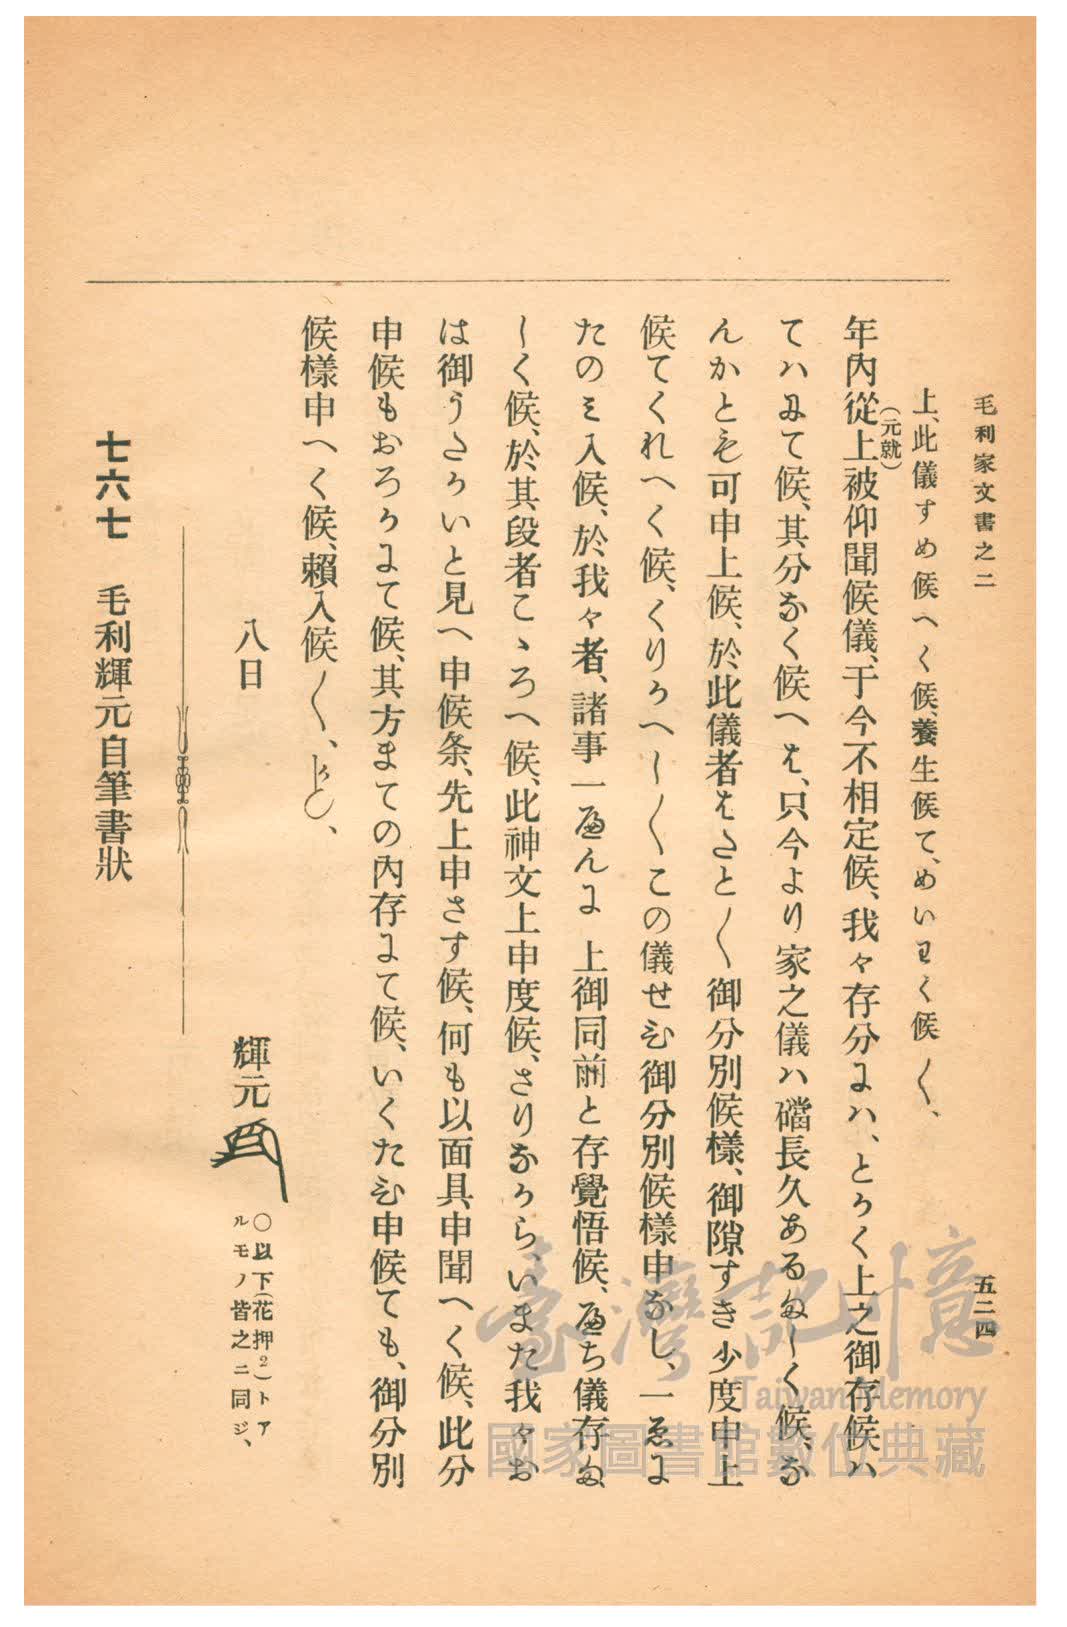 毛利家文書之二
五二四
上、此儀すめ候へく候、養生候て、めいわく候〱、
(元就)
年內從上被仰聞候儀、于今不相定候、我々存分ニハ、とかく上之御存候ハ
てハにて候、其分なく候へは、只今より家之儀ハ礑長久あるましく候、な
んかとも可申上候、於此儀者はたと〱御分別候樣、御隙すき少度申上
候てくれへく候、くりかへし〱この儀せひ御分別候樣申なし、一ゑに
たのミ入候、於我々者、諸事一へんに 上御同前と存覺悟候、へち儀存ま
しく候、於其段者こゝろへ候、此神文上申度候、さりなから、いまた我々お
は御うたかいと見へ申候条、先上申さす候、何も以面具申聞へく候、此分
申候もおろかにて候、其方まての內存にて候、いくたひ申候ても、御分別
候樣申へく候、賴入候〱、かしく、
八日
輝元
○以下(花押2)トア
ルモノ皆之ニ同ジ、
七六七 毛利輝元自筆書狀
臺灣記憶
Taiwan Memory
國家圖書館數位典藏